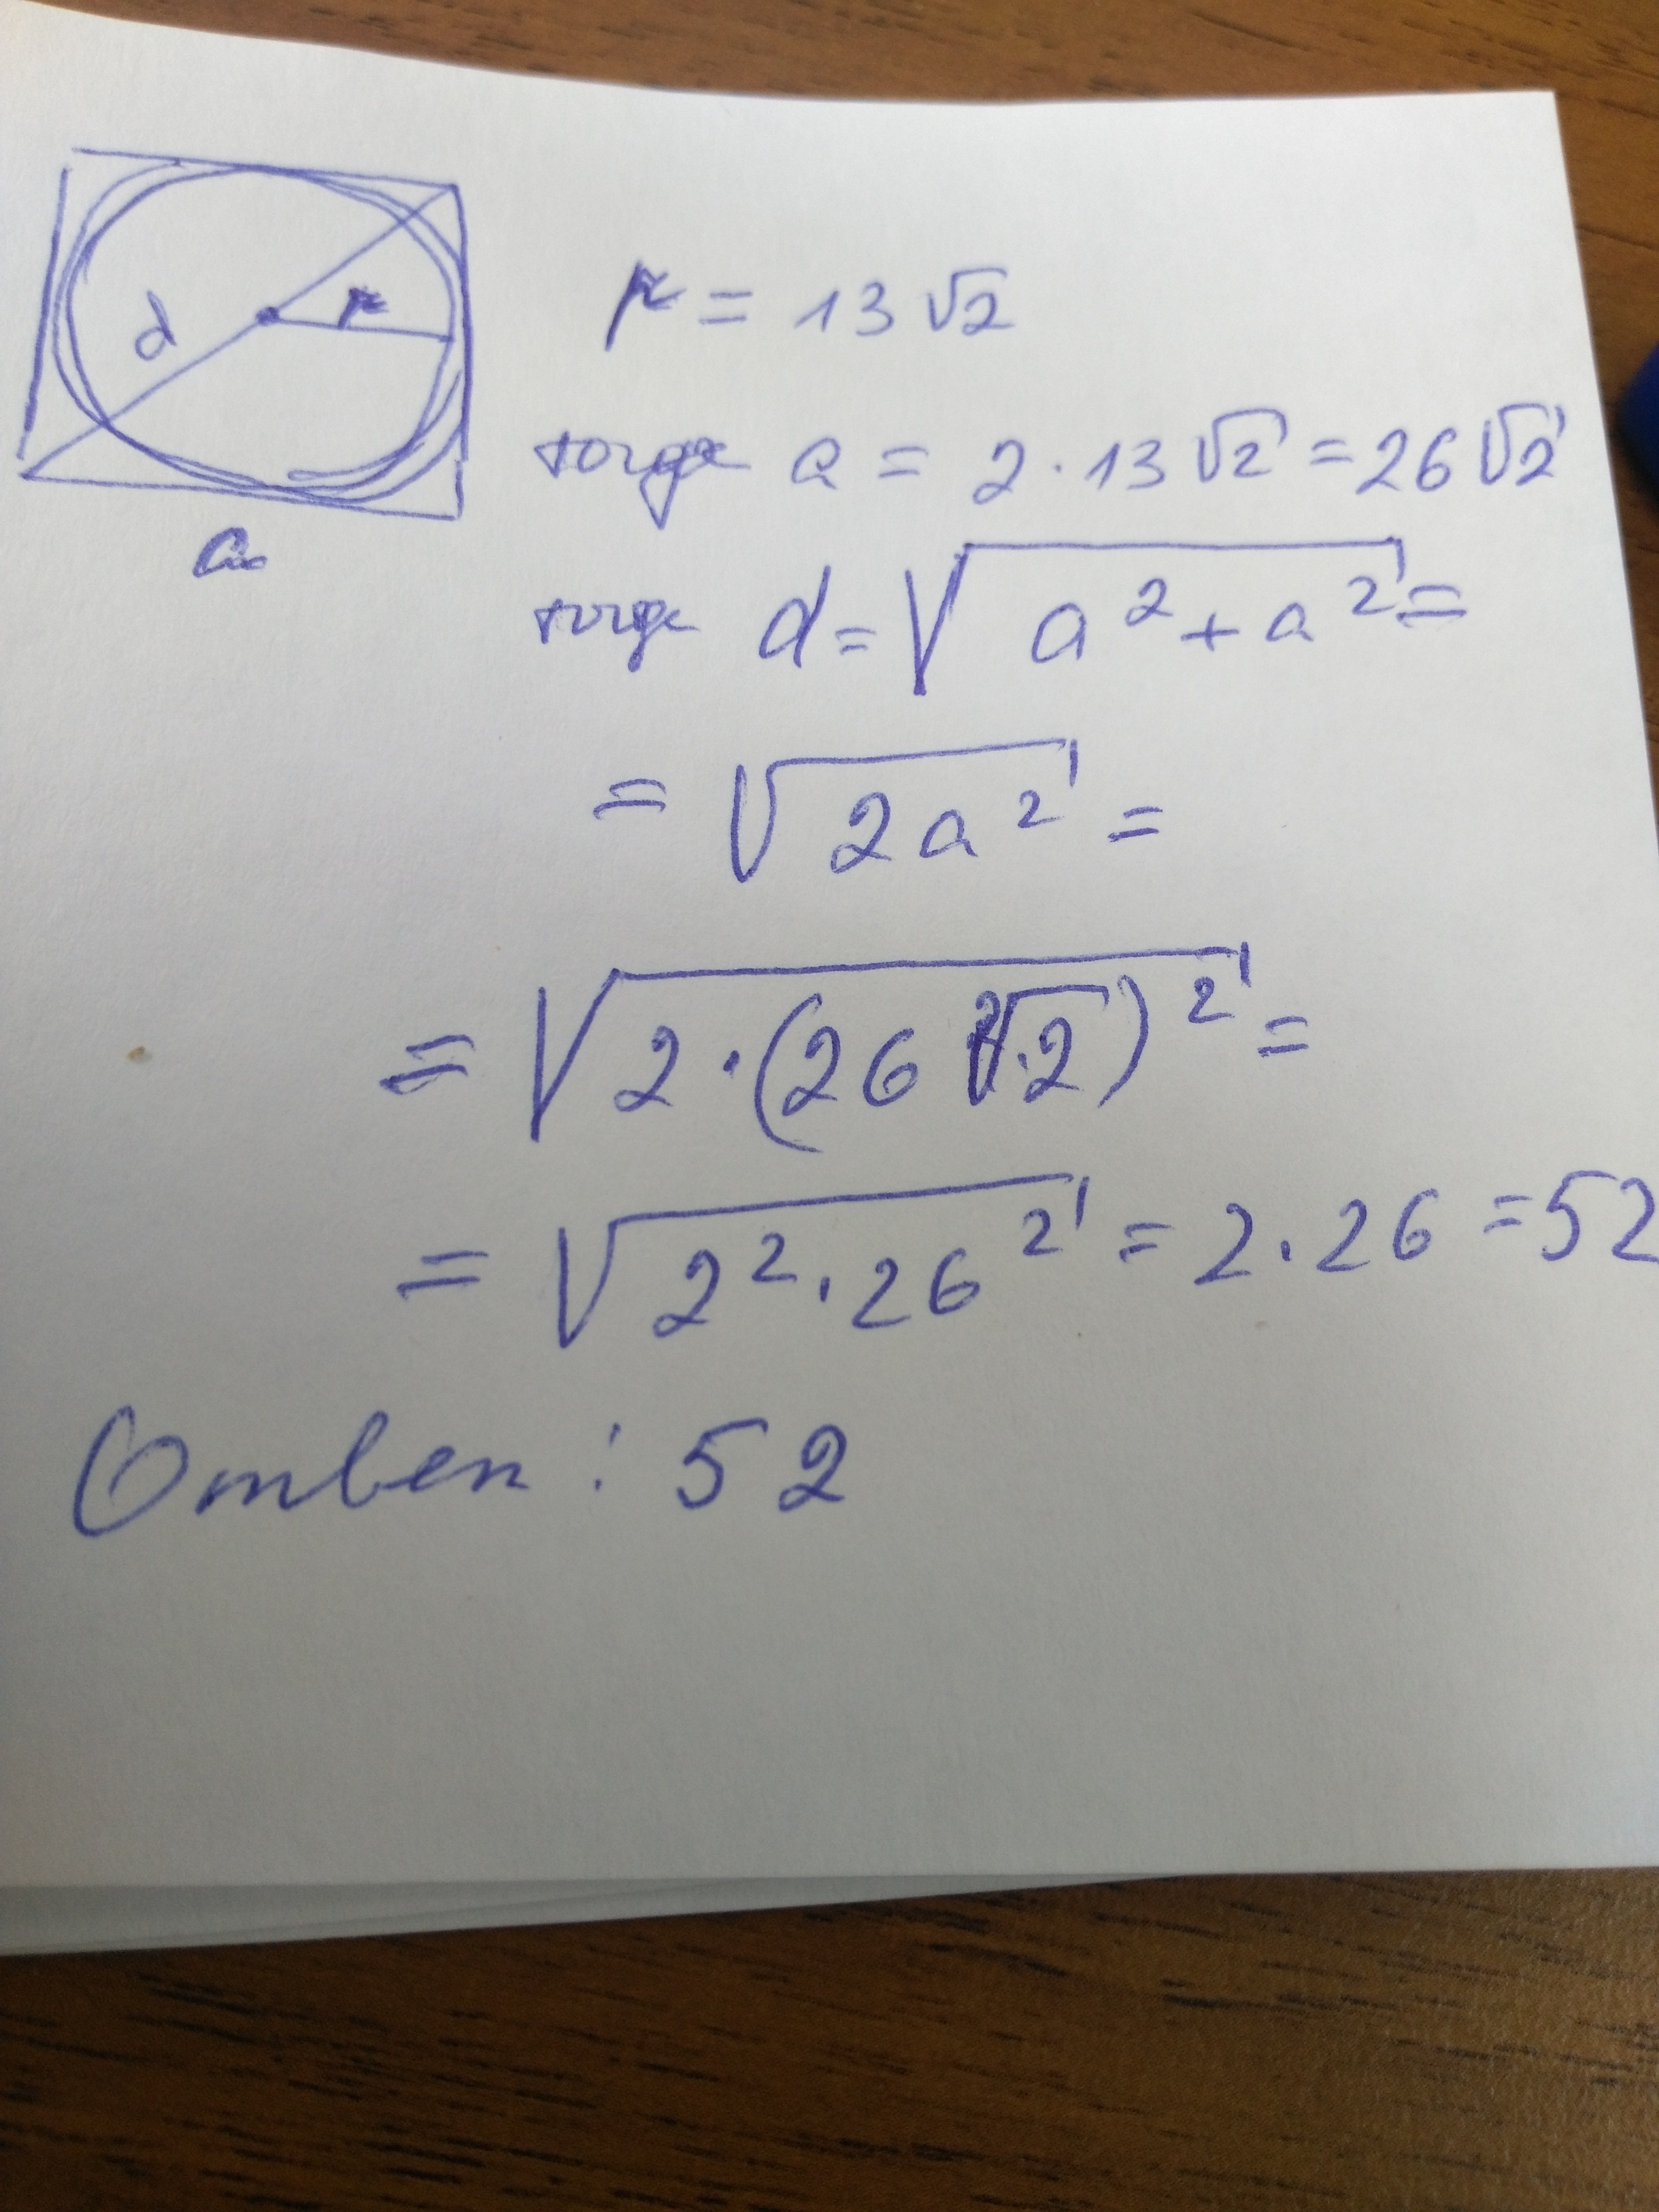 d
r
a
r = 13√2
тогда a = 2·13√2 = 26√2
тогда d = √(a² + a²) =
= √(2a²) =
= √(2·(26√2)²) =
= √(2²·26²) = 2·26 = 52
Ответ: 52